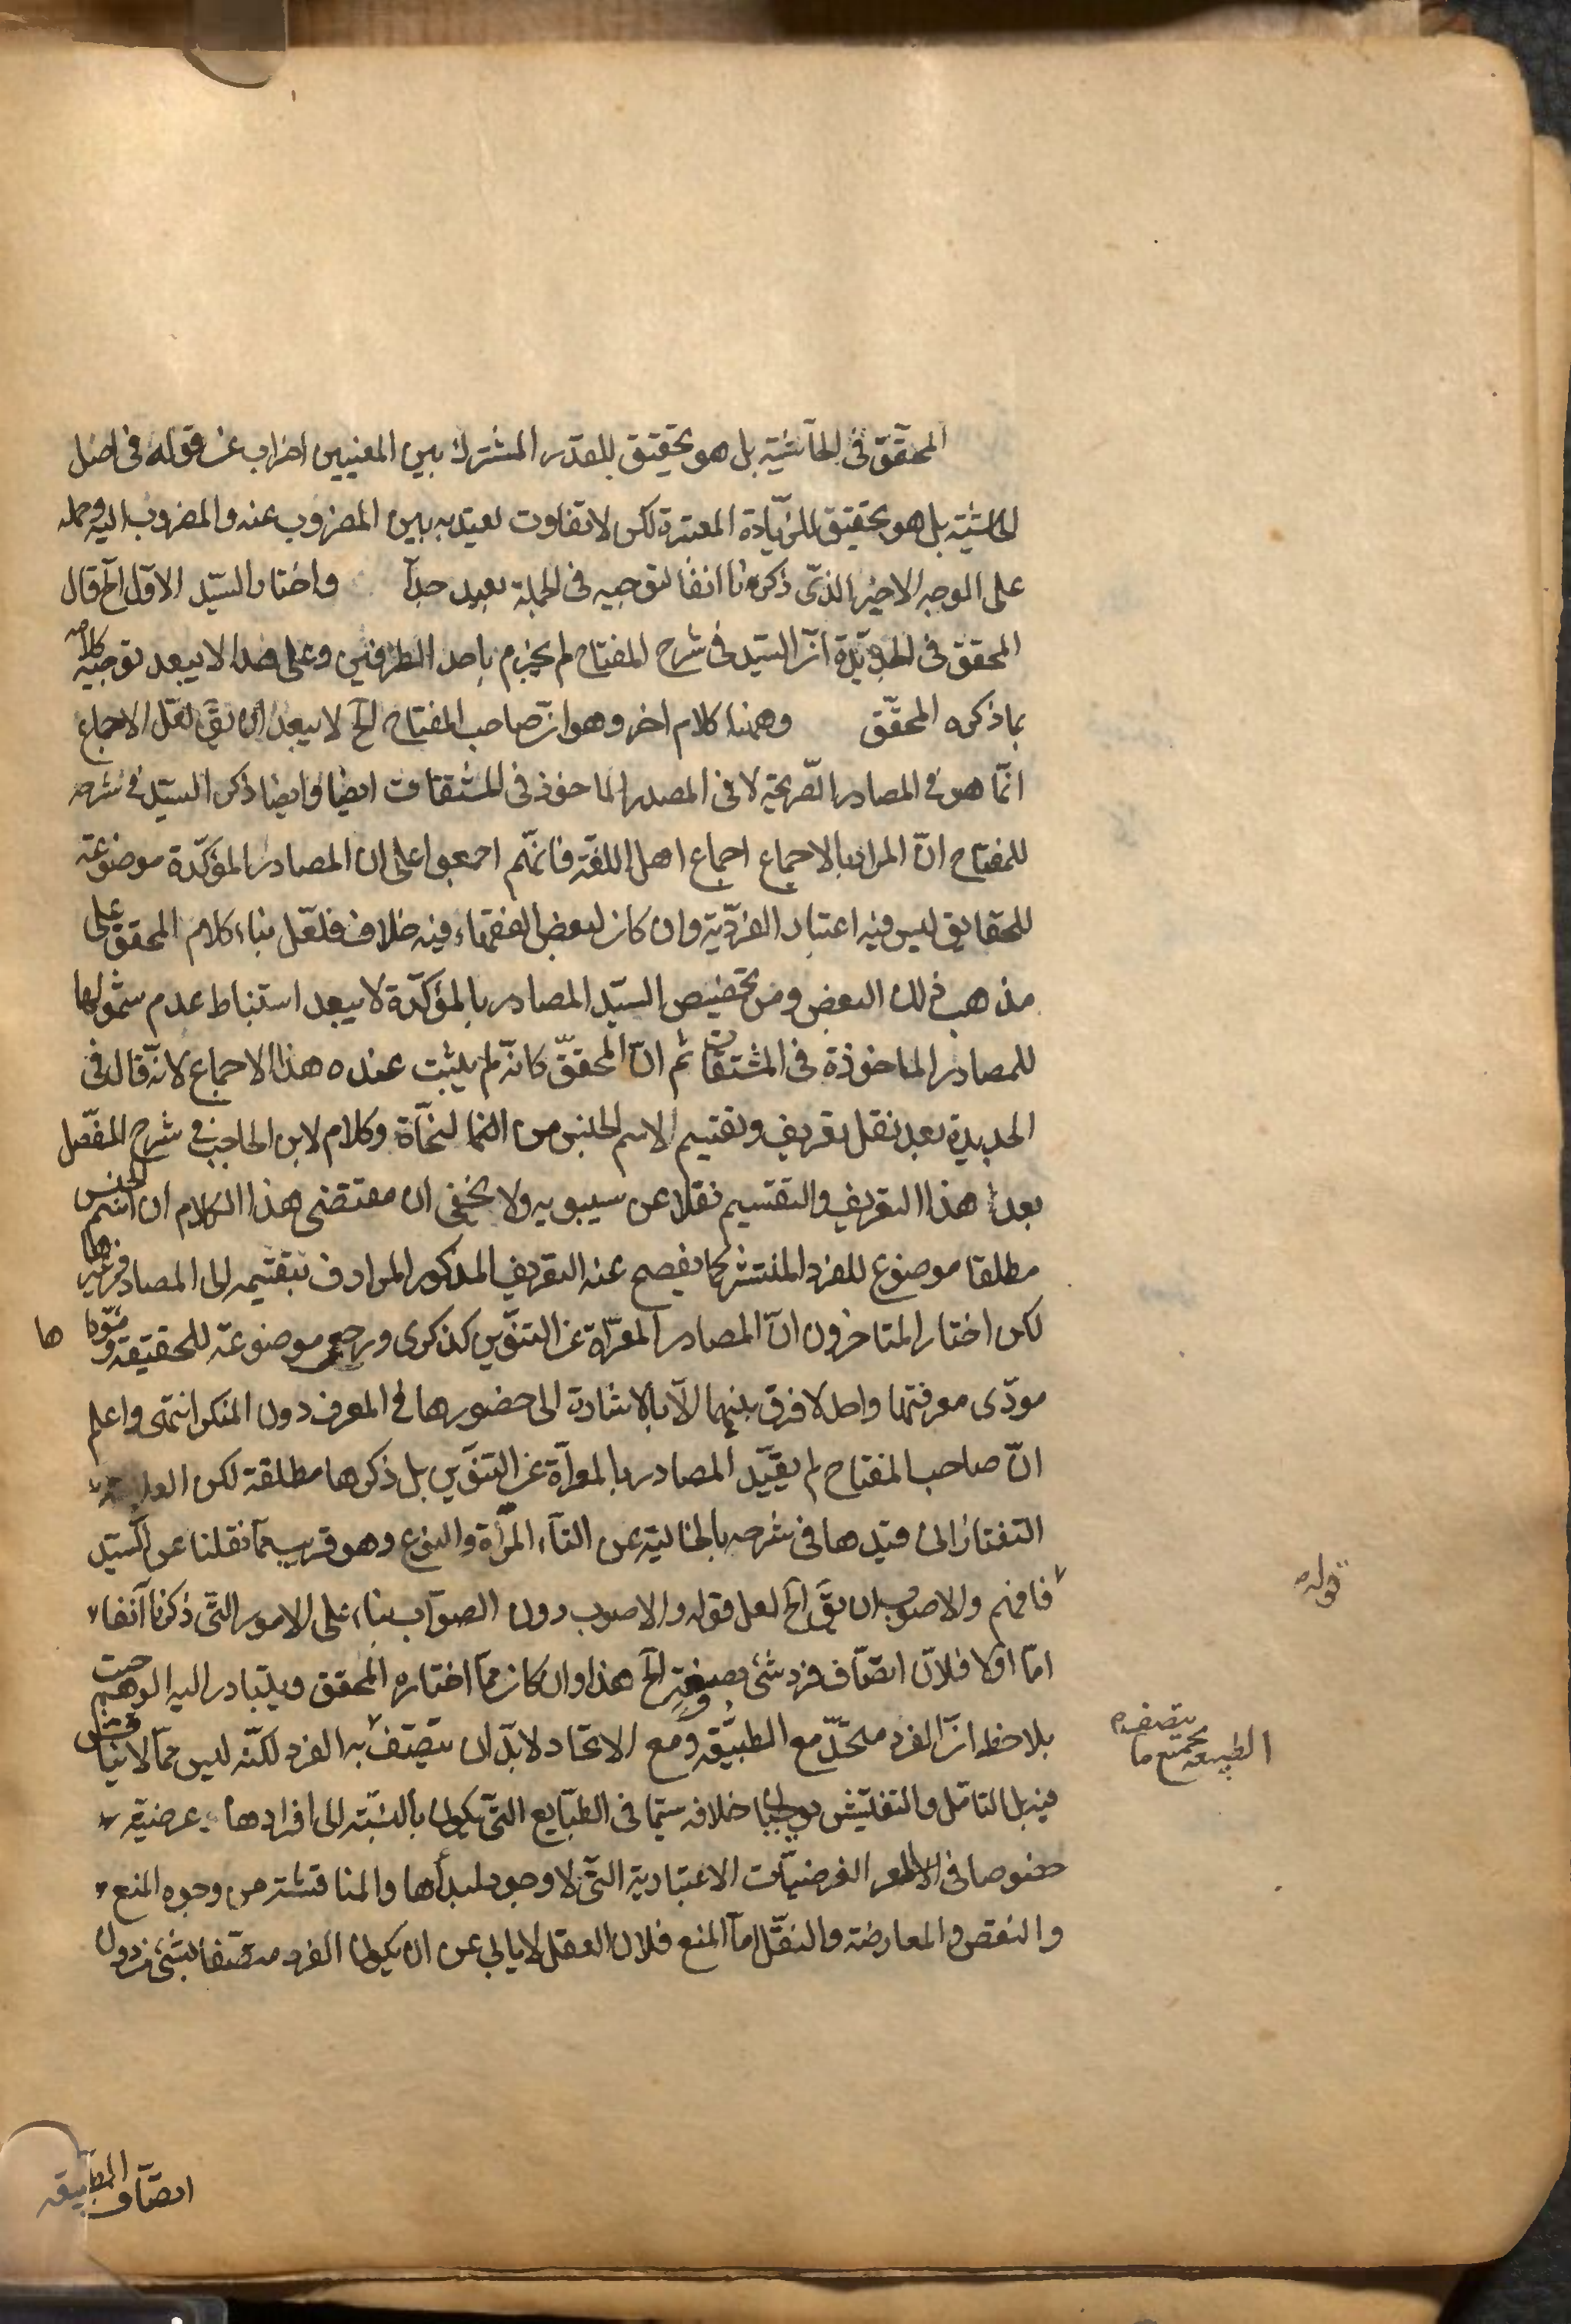 المحقق فى الحاشية بل هو تحقيق للقدر المشترك بين المعنيين اضراب عن قوله فى اصل
الحاشية بل هو تحقيق للزيادة المعتبرة لكن لا تفاوت يعتد به بين المضروب عنه والمضروب اليه وحمله
على الوجه الاخير الذى ذكرنا انفا لتوجيه فى الجملة بعيد جدا واختار السيد الاول آخ قال
المحقق فى الجديدة ان السيد فى شرح المفتاح لم يجزم باحد الطرفين وعلى هذا لا يبعد توجيه كلامه
بما ذكره المحقق وههنا كلام اخر وهو ان صاحب المفتاح الخ لا يبعد ان يق لعل الاجماع
انما هو فى المصادر الصريحة لا فى المصدر الماخوذ فى المشتقات ايضا وايضا ذكر السيد فى شرحه
للمفتاح ان المراد بالاجماع اجماع اهل اللغة فانهم اجمعوا على ان المصادر المؤكدة موضوعة
للحقايق ليس فيه اعتبار الفردية وان كان لبعض الفقهاء فيه خلاف فلعل بناء كلام المحقق على
مذهب ذلك البعض ومن تخصيص السيد المصادر بالمؤكدة لا يبعد استنباط عدم شمولها
للمصادر الماخوذة فى المشتقات ثم ان المحقق كانه لم يثبت عنده هذا الاجماع لانه قال فى
الجديدة بعد نقل تعريف وتقسيم الاسم الجنس من النحاة وكلام لابن الحاجب فى شرح المفصل
بعد هذا التعريف والتقسيم نقلا عن سيبويه ولا يخفى ان مقتضى هذا الكلام ان اسم الجنس
مطلقا موضوع للفرد المنتشر كما يفصح عنه التعريف المذكور المرادف بتقسيمه الى المصادر وغيرها
لكن اختار المتاخرون ان المصادر المعراة عن التنوين كذكرى ورجعى موضوعة للحقيقة و ها
مودى معرفتها واحد لا فرق بينهما الا بالاشارة الى حضورها فى المعرف دون المنكر انتهى واعلم
ان صاحب المفتاح لم يقيد المصادر بالمعراة عن التنوين بل ذكرها مطلقة لكن العلامة
التفتازانى قيدها فى شرحه بالخالية عن التاء المرأة والنوع وهو قريب مما نقلنا عن السيد
فافهم والاصوب ان يق الخ لعل قوله والاصوب دون الصواب بناء على الامور التى ذكرنا آنفا
اما اولا فلان اتصاف فرد شئ بصفة الخ هذا وان كان مما اختاره المحقق ويتبادر اليه الوهم حيث
يلاحظ ان الفرد متحد مع الطبيعة ومع الاتحاد لابد ان يتصف به الفرد لكنه ليس مما لا يناقش
فيه بل التامل والتفتيش يوجبان خلافه سيما فى الطبايع التى يكون بالنسبة الى افرادها عرضية
خصوصا فى الامور الفرضيات الاعتبارية التى لا وجود لمبدأها والمناقشة من وجوه المنع
والنقض والمعارضة والنقل اما المنع فلان العقل لا يابى عن ان يكون الفرد متصفا بشئ من دون
قوله
يتصف
الطبيعة بجميع ما
اتصاف الطبيعة